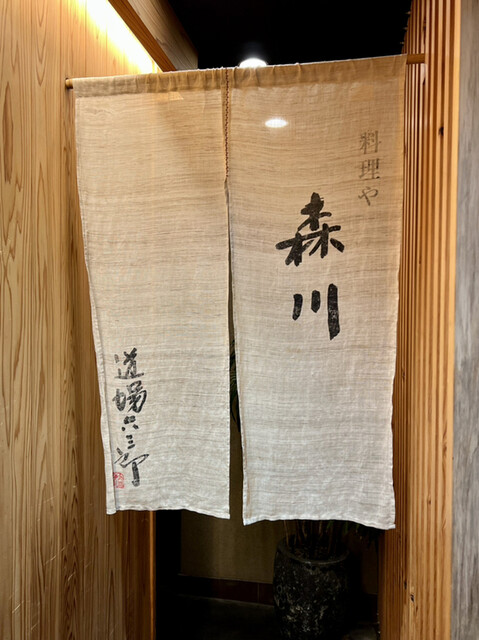 料理や
森川
道場六三郎